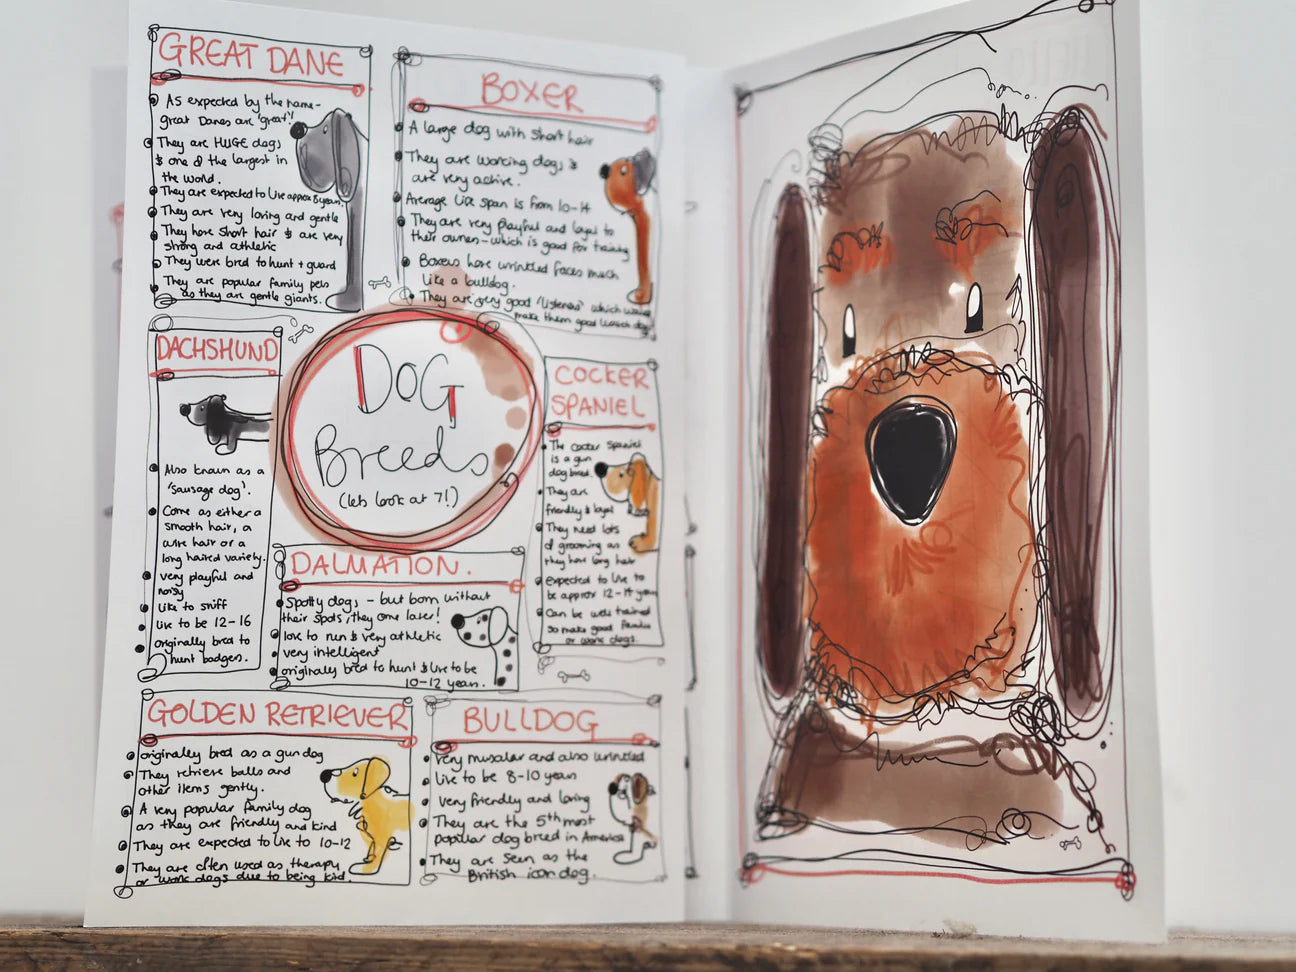 GREAT DANE
As expected by the name -
great Danes are 'great'!
They are HUGE dogs
& one of the largest in
the world.
They are expected to live approx 8 years.
They are very loving and gentle
They have short hair & are very
strong and athletic
They were bred to hunt + guard
They are popular family pets
as they are gentle giants.
BOXER
A large dog with short hair
They are working dogs &
are very active.
Average life span is from 10-14
They are very playful and loyal to
their owners - which is good for training
Boxers have wrinkled faces much
like a bulldog.
They are very good 'listeners' which
make them good watch dogs
DACHSHUND
Also known as a
'sausage dog'.
Come as either a
smooth hair, a
wire hair or a
long haired variety.
very playful and
noisy
like to sniff
live to be 12-16
originally bred to
hunt badgers.
DOG
Breeds
(lets look at 7!)
COCKER
SPANIEL
The cocker spaniel
is a gun
dog breed.
They are
friendly & loyal
They need lots
of grooming as
they have long hair
Expected to live to
be approx 12-14 years
Can be well trained
so make good families
or work dogs.
DALMATION.
Spotty dogs - but born without
their spots, they come later!
love to run & very athletic
very intelligent
originally bred to hunt & live to be
10-12 years.
GOLDEN RETRIEVER
originally bred as a gun dog
They retrieve balls and
other items gently.
A very popular family dog
as they are friendly and kind
They are expected to live to 10-12
They are often used as therapy
or work dogs due to being kind.
BULLDOG
very muscular and also wrinkled
live to be 8-10 years
very friendly and loving
They are the 5th most
popular dog breed in America
They are seen as the
British icon dog.